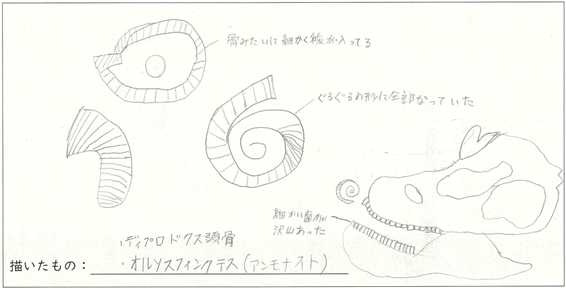 骨みたいに細かく線が入ってる
ぐるぐるの形に全部なっていた
細かい歯が
沢山あった
・ディプロドクス頭骨
描いたもの：・オルソスフィンクテス(アンモナイト)